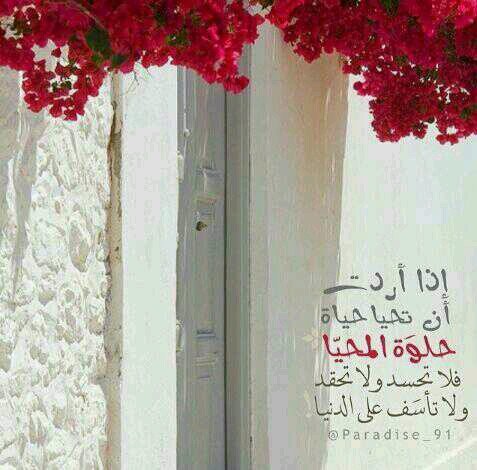 إذا أردت
أن تحيا حياة
حلوَة المحيّا
فلا تحسد ولا تحقد
ولا تأسَف على الدنيا
@Paradise_91